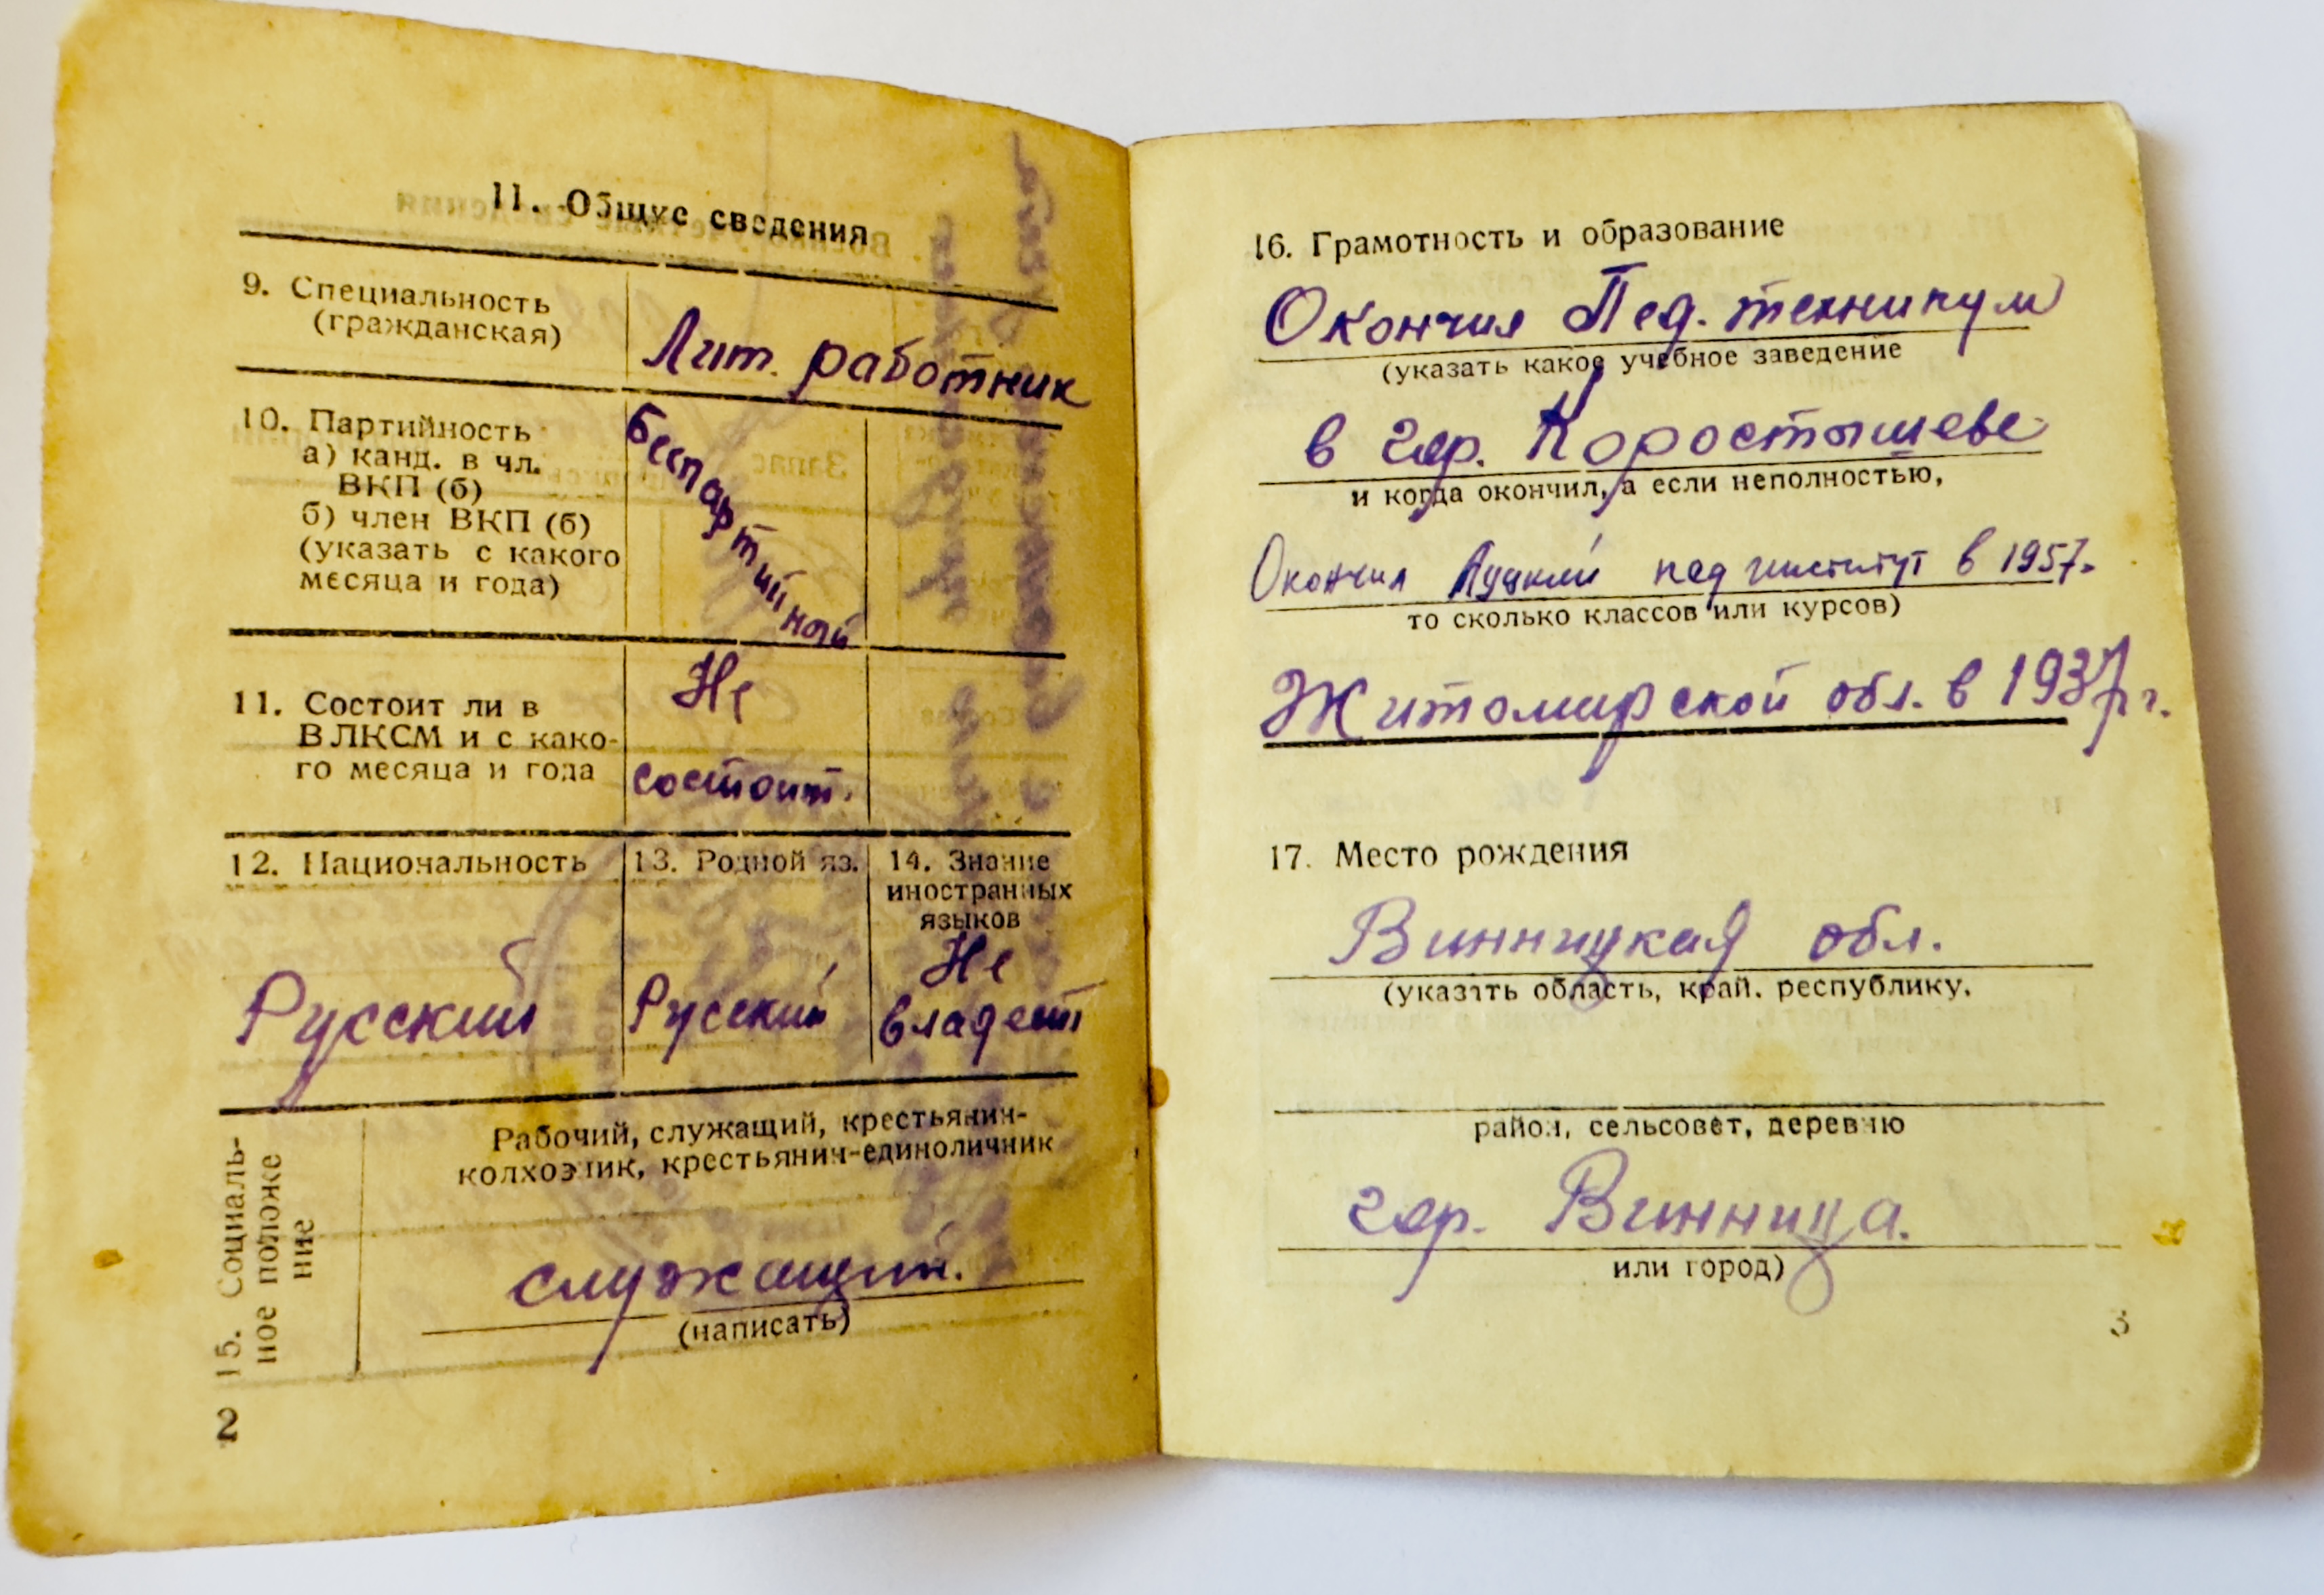 11. Общие сведения
9. Специальность
(гражданская)
Лит. работник
10. Партийность
а) канд. в чл.
ВКП (б)
б) член ВКП (б)
(указать с какого
месяца и года)
Беспартийной
11. Состоит ли в
ВЛКСМ и с како-
го месяца и года
Не
состоит.
12. Национальность
Русский
13. Родной яз.
Русский
14. Знание
иностранных
языков
Не
владеет
15. Социаль-
ное положе
ние
Рабочий, служащий, крестьянин-
колхозник, крестьянин-единоличник
служащий.
(написать)
2
16. Грамотность и образование
Окончил Пед. техникум
(указать какое учебное заведение
в гор. Коростышеве
и когда окончил, а если неполностью,
Окончил пед институт в 1957.
то сколько классов или курсов)
Житомирской обл. в 1937 г.
17. Место рождения
Винницкая обл.
(указать область, край, республику,
район, сельсовет, деревню
гор. Винница.
или город)
3